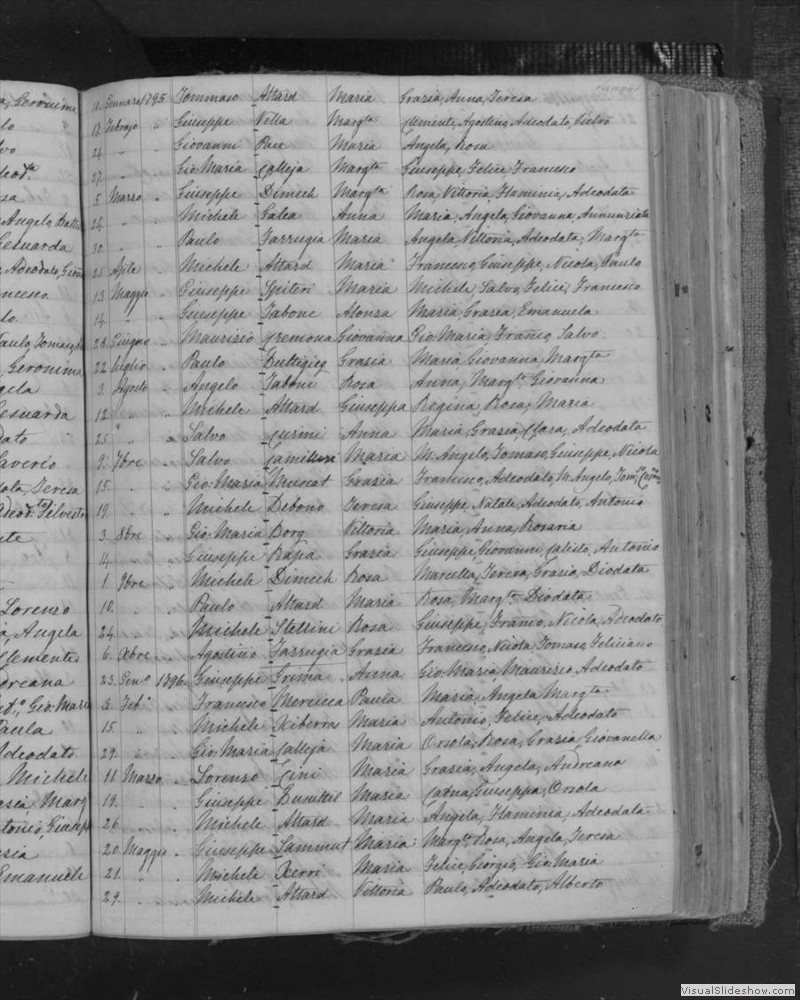 Geronima
Angelo
Gesuarda
Adeodato, Gio
Francesco
Paulo, Tomaso
Geronima
Angela
Gesuarda
Saverio
Teresa
Lorenzo
Angela
Clemente
Gio Maria
Paula
Adeodato
Michele
Marg
Antonio, Giusep
Emanuele
11. Gennaro 1795 Tommaso Attard Maria Grazia, Anna, Teresa
17. Febrajo " Giuseppe Vella Margta Clemente, Agostino, Adeodato, Pietro
24. " " Giovanni Pace Maria Angela, Rosa
27. " " Gio Maria Calleja Margta Giuseppe, Felice, Francesco
5. Marzo " Giuseppe Dimech Margta Rosa, Vittoria, Flaminia, Adeodata
24. " " Michele Galea Anna Maria, Angela, Giovanna Annunziata
30. " " Paulo Farrugia Maria Angela, Vittoria, Adeodata, Margta
25. Aple " Michele Attard Maria Francesco, Giuseppe, Nicola, Paulo
13. Maggio " Giuseppe Spiteri Maria Michele, Salvo, Felice, Francesco
14. " " Giuseppe Tabone Alonza Maria, Grazia, Emanuela
23. Giugno " Maurizio Cremona Giovanna Gio Maria, Franco, Salvo
22. Luglio " Paulo Buttigieg Grazia Maria, Giovanna, Margta
3. Agosto " Angelo Taboni Rosa Anna, Margta Giovanna
12. " " Michele Attard Giuseppa Regina, Rosa, Maria
25. " " Salvo Cusini Anna Maria, Grazia, Clara, Adeodata
9. 7bre " Salvo Maria M. Angelo, Tomaso, Giuseppe, Nicola
15. " " Gio: Maria Muscat Grazia Francesco, Adeodato, M. Angelo,
19. " " Michele Debono Teresa Giuseppe, Natale, Adeodato, Antonio
3. 8bre " Gio: Maria Borg Vittoria Maria, Anna, Rosaria
14. " " Giuseppe Rapa Grazia Giuseppe, Giovanni, Calisto, Antonio
1. 9bre " Michele Dimech Rosa Marcella, Teresa, Grazia, Diodata
10. " " Paulo Attard Maria Rosa, Margta Diodata
24. " " Michele Stellini Rosa Giuseppe, Franco, Nicola, Adeodato
6. Xbre " Agostino Farrugia Grazia Francesco, Nicola, Tomaso, Feliciano
23. Geno 1796. Giuseppe Grima Anna Gio: Maria, Maurizio, Adeodato
3. Febo " Francesco Mercieca Paula Maria, Angela Margta
15. " " Michele Xiberra Maria Antonio, Felice, Adeodato
29. " " Gio: Maria Calleja Maria Orsola, Rosa, Grazia Giovanella
11. Marzo " Lorenzo Cini Maria Grazia, Angela, Andreana
19. " " Giuseppe Busuttil Maria Catna, Giuseppa, Orsola
26. " " Michele Attard Maria Angela, Flaminia, Adeodata
20. Maggio " Giuseppe Sammut Maria Margta Rosa, Angela, Teresa
21. " " Michele Xerri Maria Felice, Giorgio, Gio Maria
29. " " Michele Attard Vittoria Paulo, Adeodato, Alberto
VisualSlideshow.com